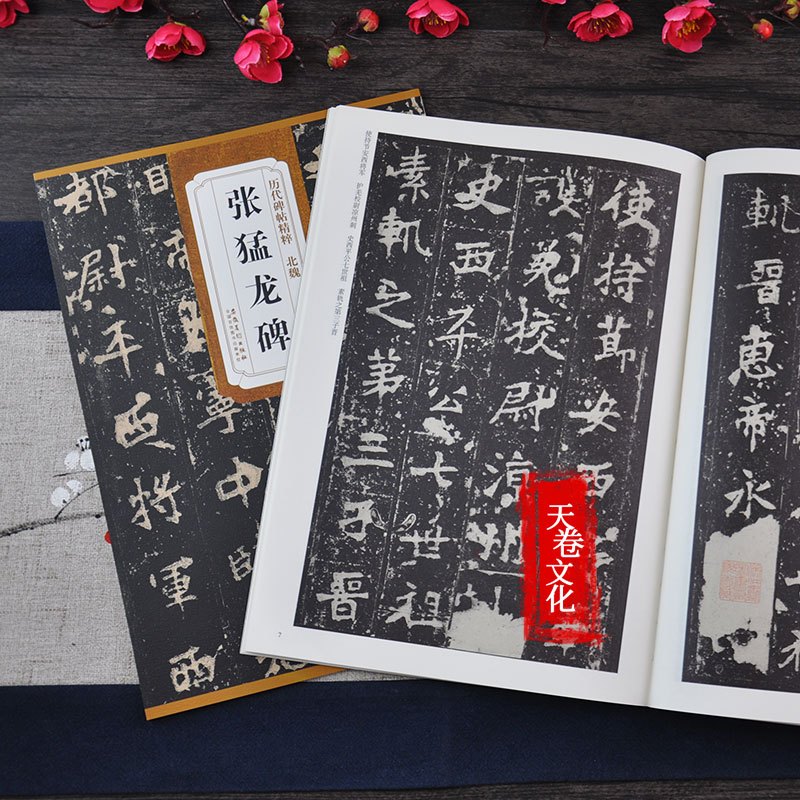 历代碑帖精粹 北魏
张猛龙碑
都尉平西将軍西
寧中
使持节安西将军 护羌校尉凉州刺 史西平公七世祖 素轨之第三子晋
使持節安西
護羌校尉涼州
史西平公七世祖
素軌之第三子晉
7
軌晉惠帝永
天卷文化